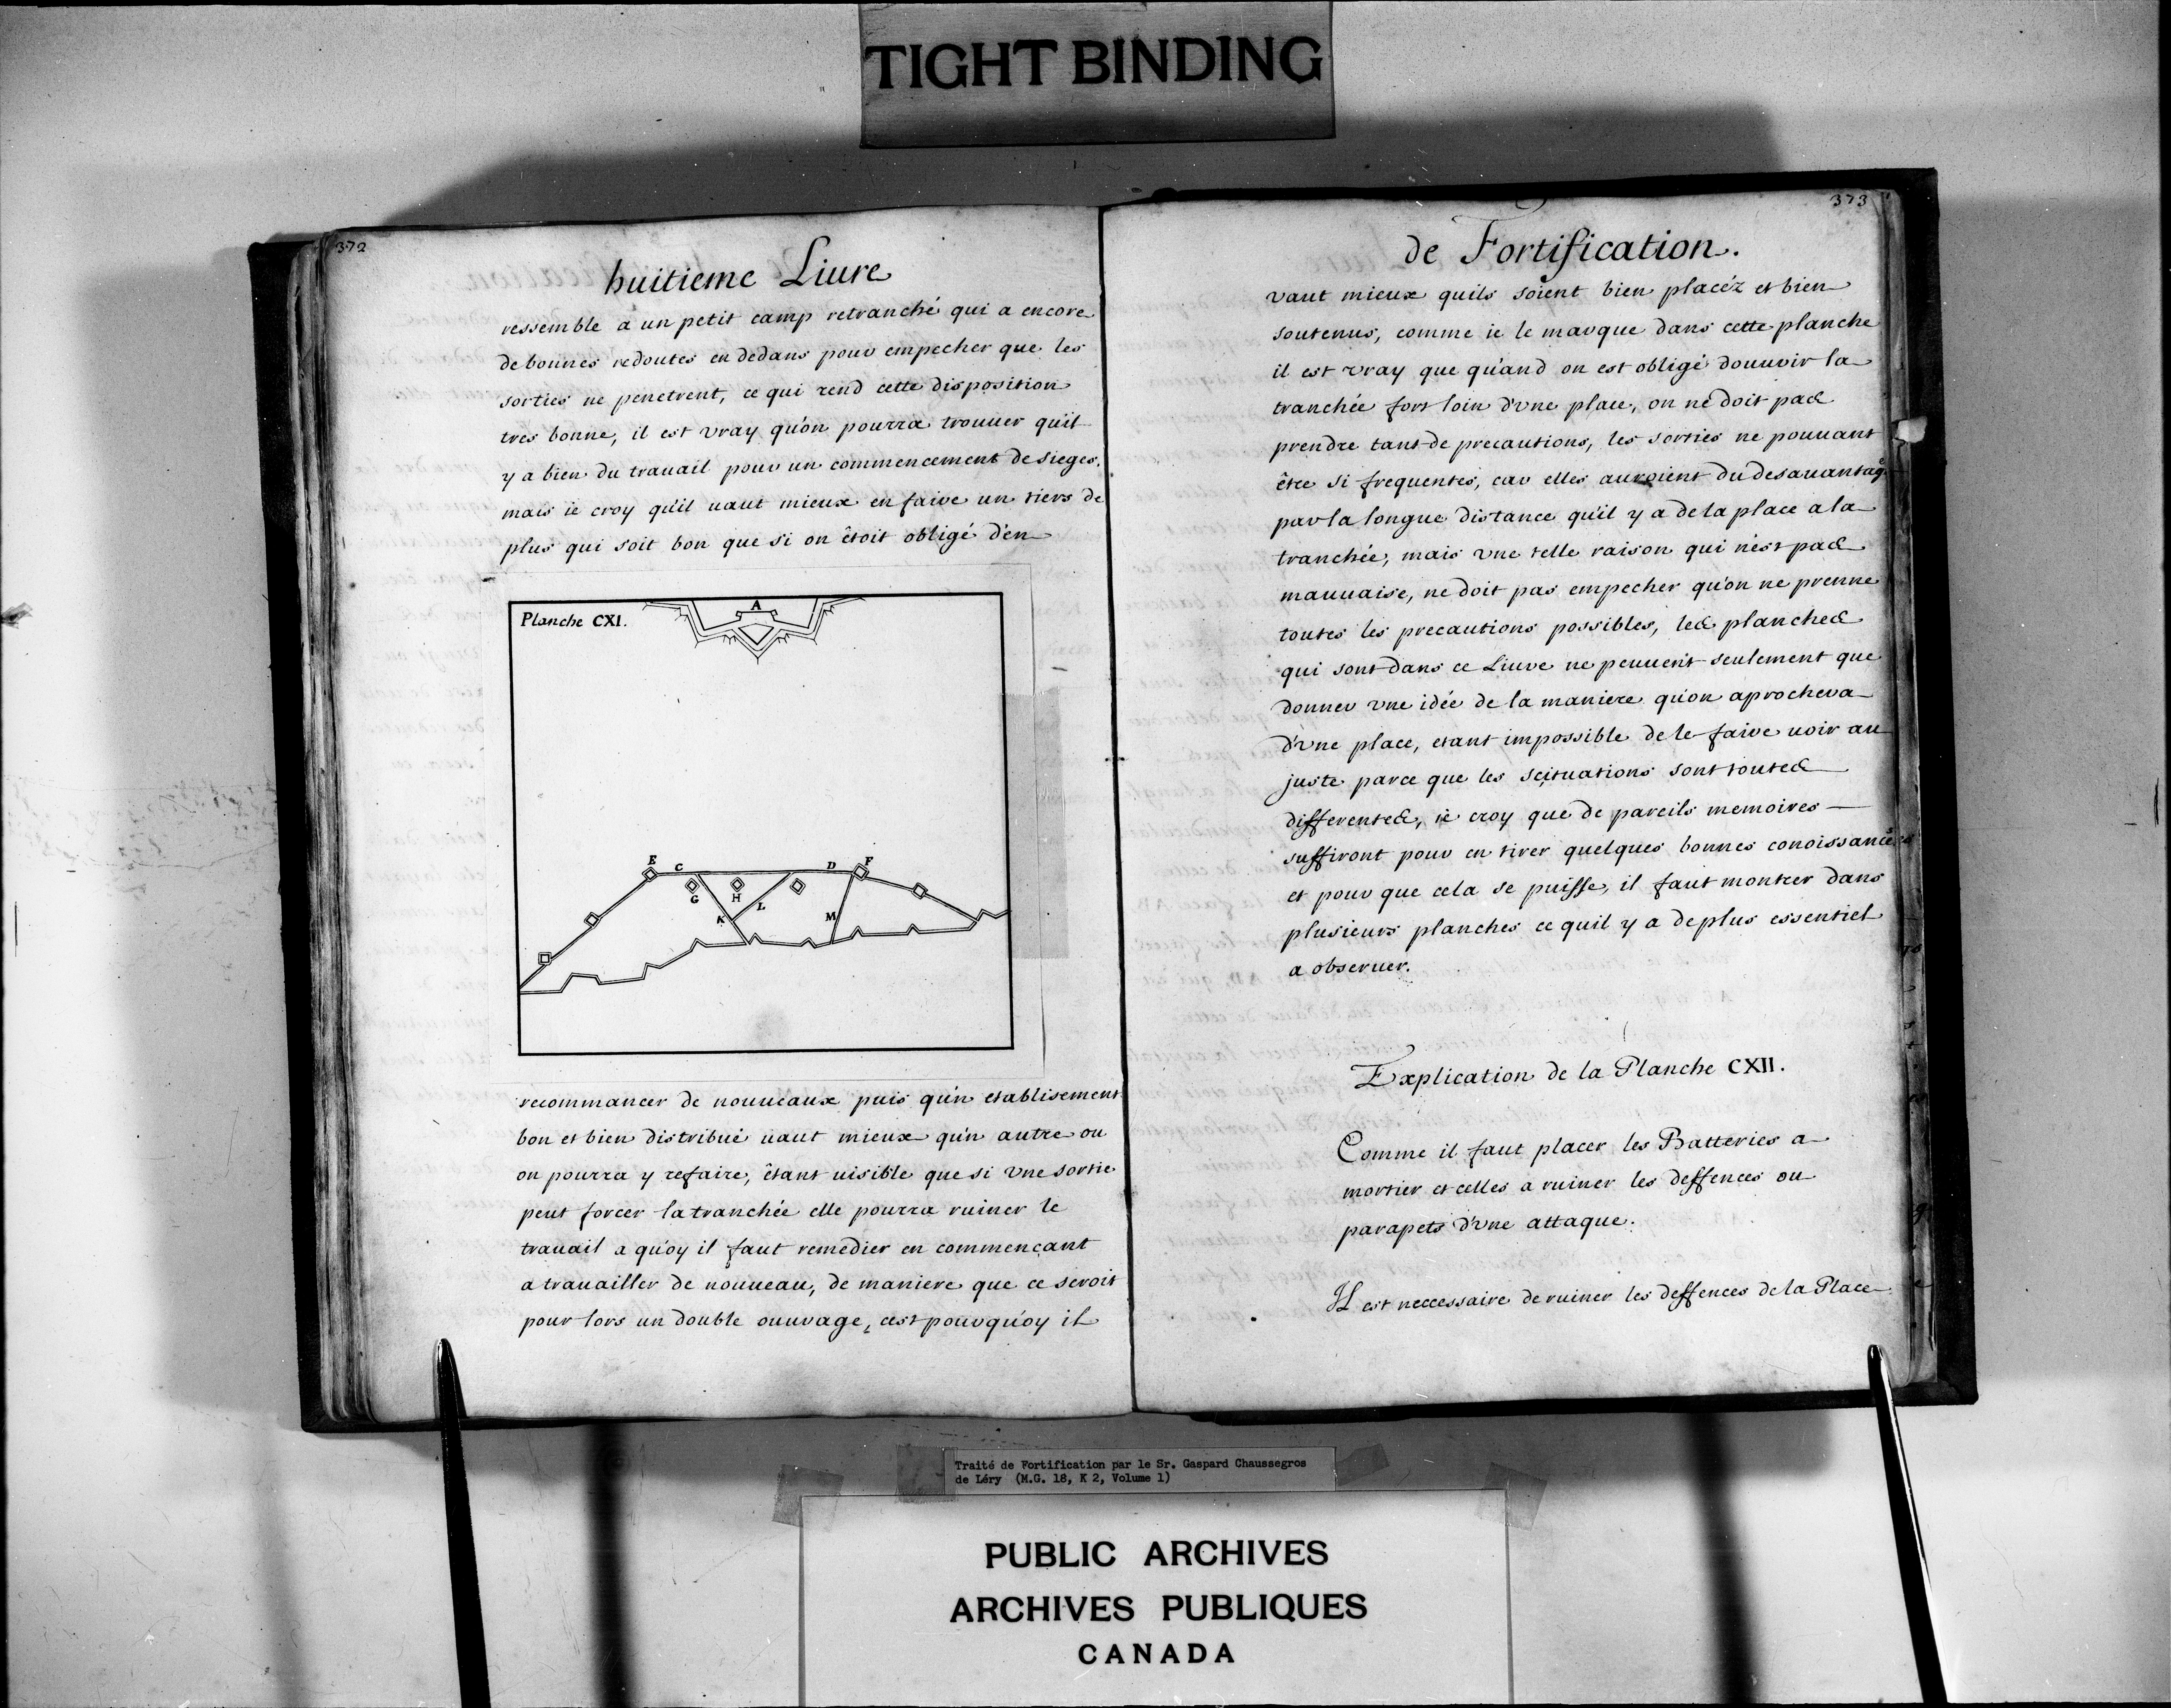 TIGHT BINDING
372
huitieme Liure
ressemble a un petit camp retranché qui a encore
de bonnes redoutes en dedans pour empecher que les
sorties ne penetrent, ce qui rend cette disposition
tres bonne, il est vray qu'on pourra trouuer qu'il
y a bien du trauail pour un commencement de sieges,
mais ie croy qu'il uaut mieux en faire un tiers de
plus qui soit bon que si on êtoit obligé d'en
Planche CXI.
A
E C D F
G H L
K M
recommancer de nouueaux puis qu'un etablisement
bon et bien distribué uaut mieux qu'n autre ou
on pourra y refaire, êtant uisible que si vne sortie
peut forcer la tranchée elle pourra ruiner le
trauail a qu'oy il faut remedier en commençant
a trauailler de nouueau, de maniere que ce seroit
pour lors un double ouurage, c'est pourqu'oy il
373
de Fortification.
vaut mieux quils soient bien placéz et bien
soutenus, comme ie le marque dans cette planche
il est vray que qu'and on est obligé douurir la
tranchée fort loin d'vne place, on ne doit pas
prendre tant de precautions, les sorties ne pouuant
être si frequentes, car elles auroient du desauantage
par la longue distance qu'il y a de la place a la
tranchée, mais vne telle raison qui n'est pas
mauuaise, ne doit pas empecher qu'on ne prenne
toutes les precautions possibles, les planches
qui sont dans ce Liure ne peuuent seulement que
donner vne idée de la maniere qu'on aprochera
d'vne place, etant impossible de le faire uoir au
juste parce que les scituations sont toutes
differentes, ie croy que de pareils memoires
suffiront pour en tirer quelques bonnes conoissances
et pour que cela se puisse, il faut montrer dans
plusieurs planches ce quil y a de plus essentiel
a obseruer.
Explication de la Planche CXII.
Comme il faut placer les Batteries a
mortier et celles a ruiner les deffences ou
parapets d'vne attaque.
Il est neccessaire de ruiner les deffences de la Place
Traité de Fortification par le Sr. Gaspard Chaussegros
de Léry (M.G. 18, K 2, Volume 1)
PUBLIC ARCHIVES
ARCHIVES PUBLIQUES
CANADA